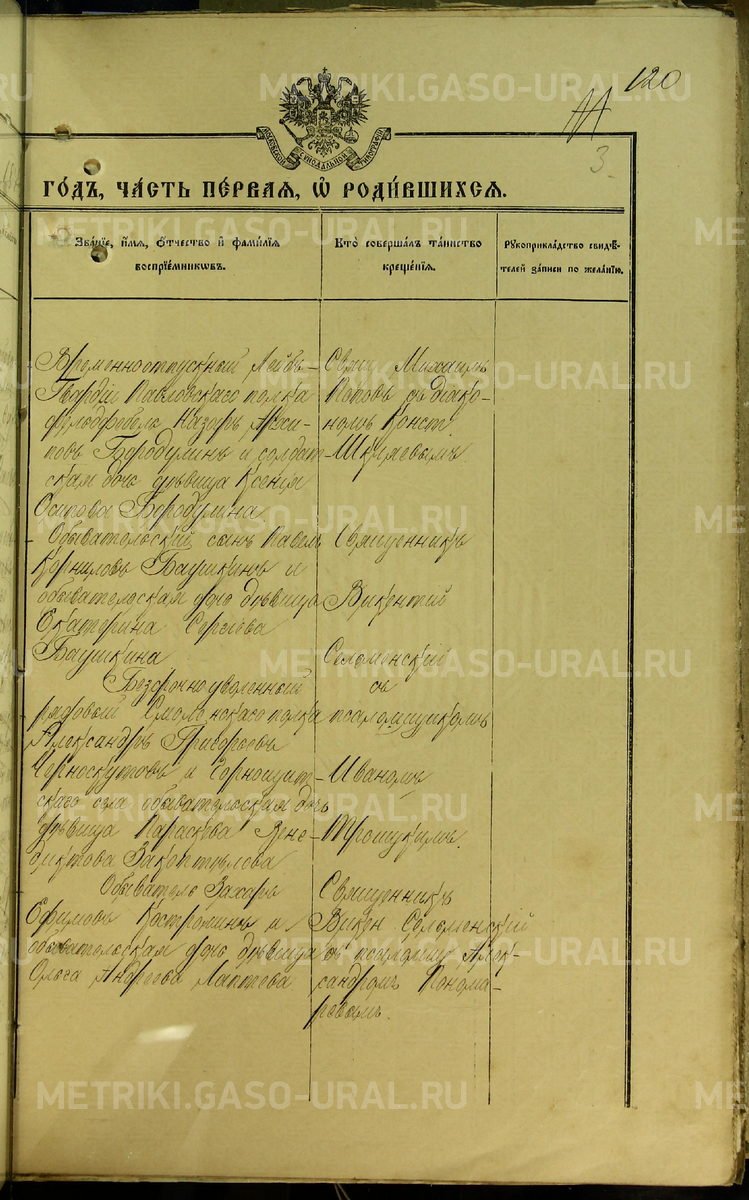 120
3.
МОСКОВСКОЙ СѴНОДАЛЬНОЙ ТИПОГРАФІИ
ГО́ДЪ, ЧА́СТЬ ПЕ́РВАЯ, Ѽ РОДИ́ВШИХСЯ.
Зва́нїе, и́мя, о́тчество и҆ фами́лїя
воспрїе́мникѡвъ.
Кто̀ соверша́лъ та́инство
креще́нїя.
Рукоприкла́дство свидѣ́-
телей за́писи по жела́нїю.
Временноотпускный Лейбъ-
Гвардіи Павловскаго полка
фельдфебель Назаръ Оси-
повъ Бородулинъ и солдат-
ская дочь дѣвица Ксенія
Осипова Бородулина
Свящ Михаилъ
Поповъ съ діако-
номъ Конст
Обывательскій сынъ Павелъ
Корниловъ Баушкинъ и
обывательская дочь дѣвица
Екатерина Сергѣева
Баушкина
Священникъ
Викентій
Селоменскій
съ
псаломщикомъ
Иваномъ
Троицкимъ.
Безсрочноуволенный
рядовый Смоленскаго полка
Александръ Григорьевъ
Черноскутовъ и Горнощит-
скаго села обывательская дочь
дѣвица Параскова Вене-
диктова Закоптѣлова
Обыватель Захаръ
Ефимовъ Костромин и
обывательская дочь дѣвица
Ольга Андреева Лаптева
Священникъ
Викен Селоменскій
съ псаломщ Алек-
сандромъ Понома-
ревымъ.
METRIKI.GASO-URAL.RU